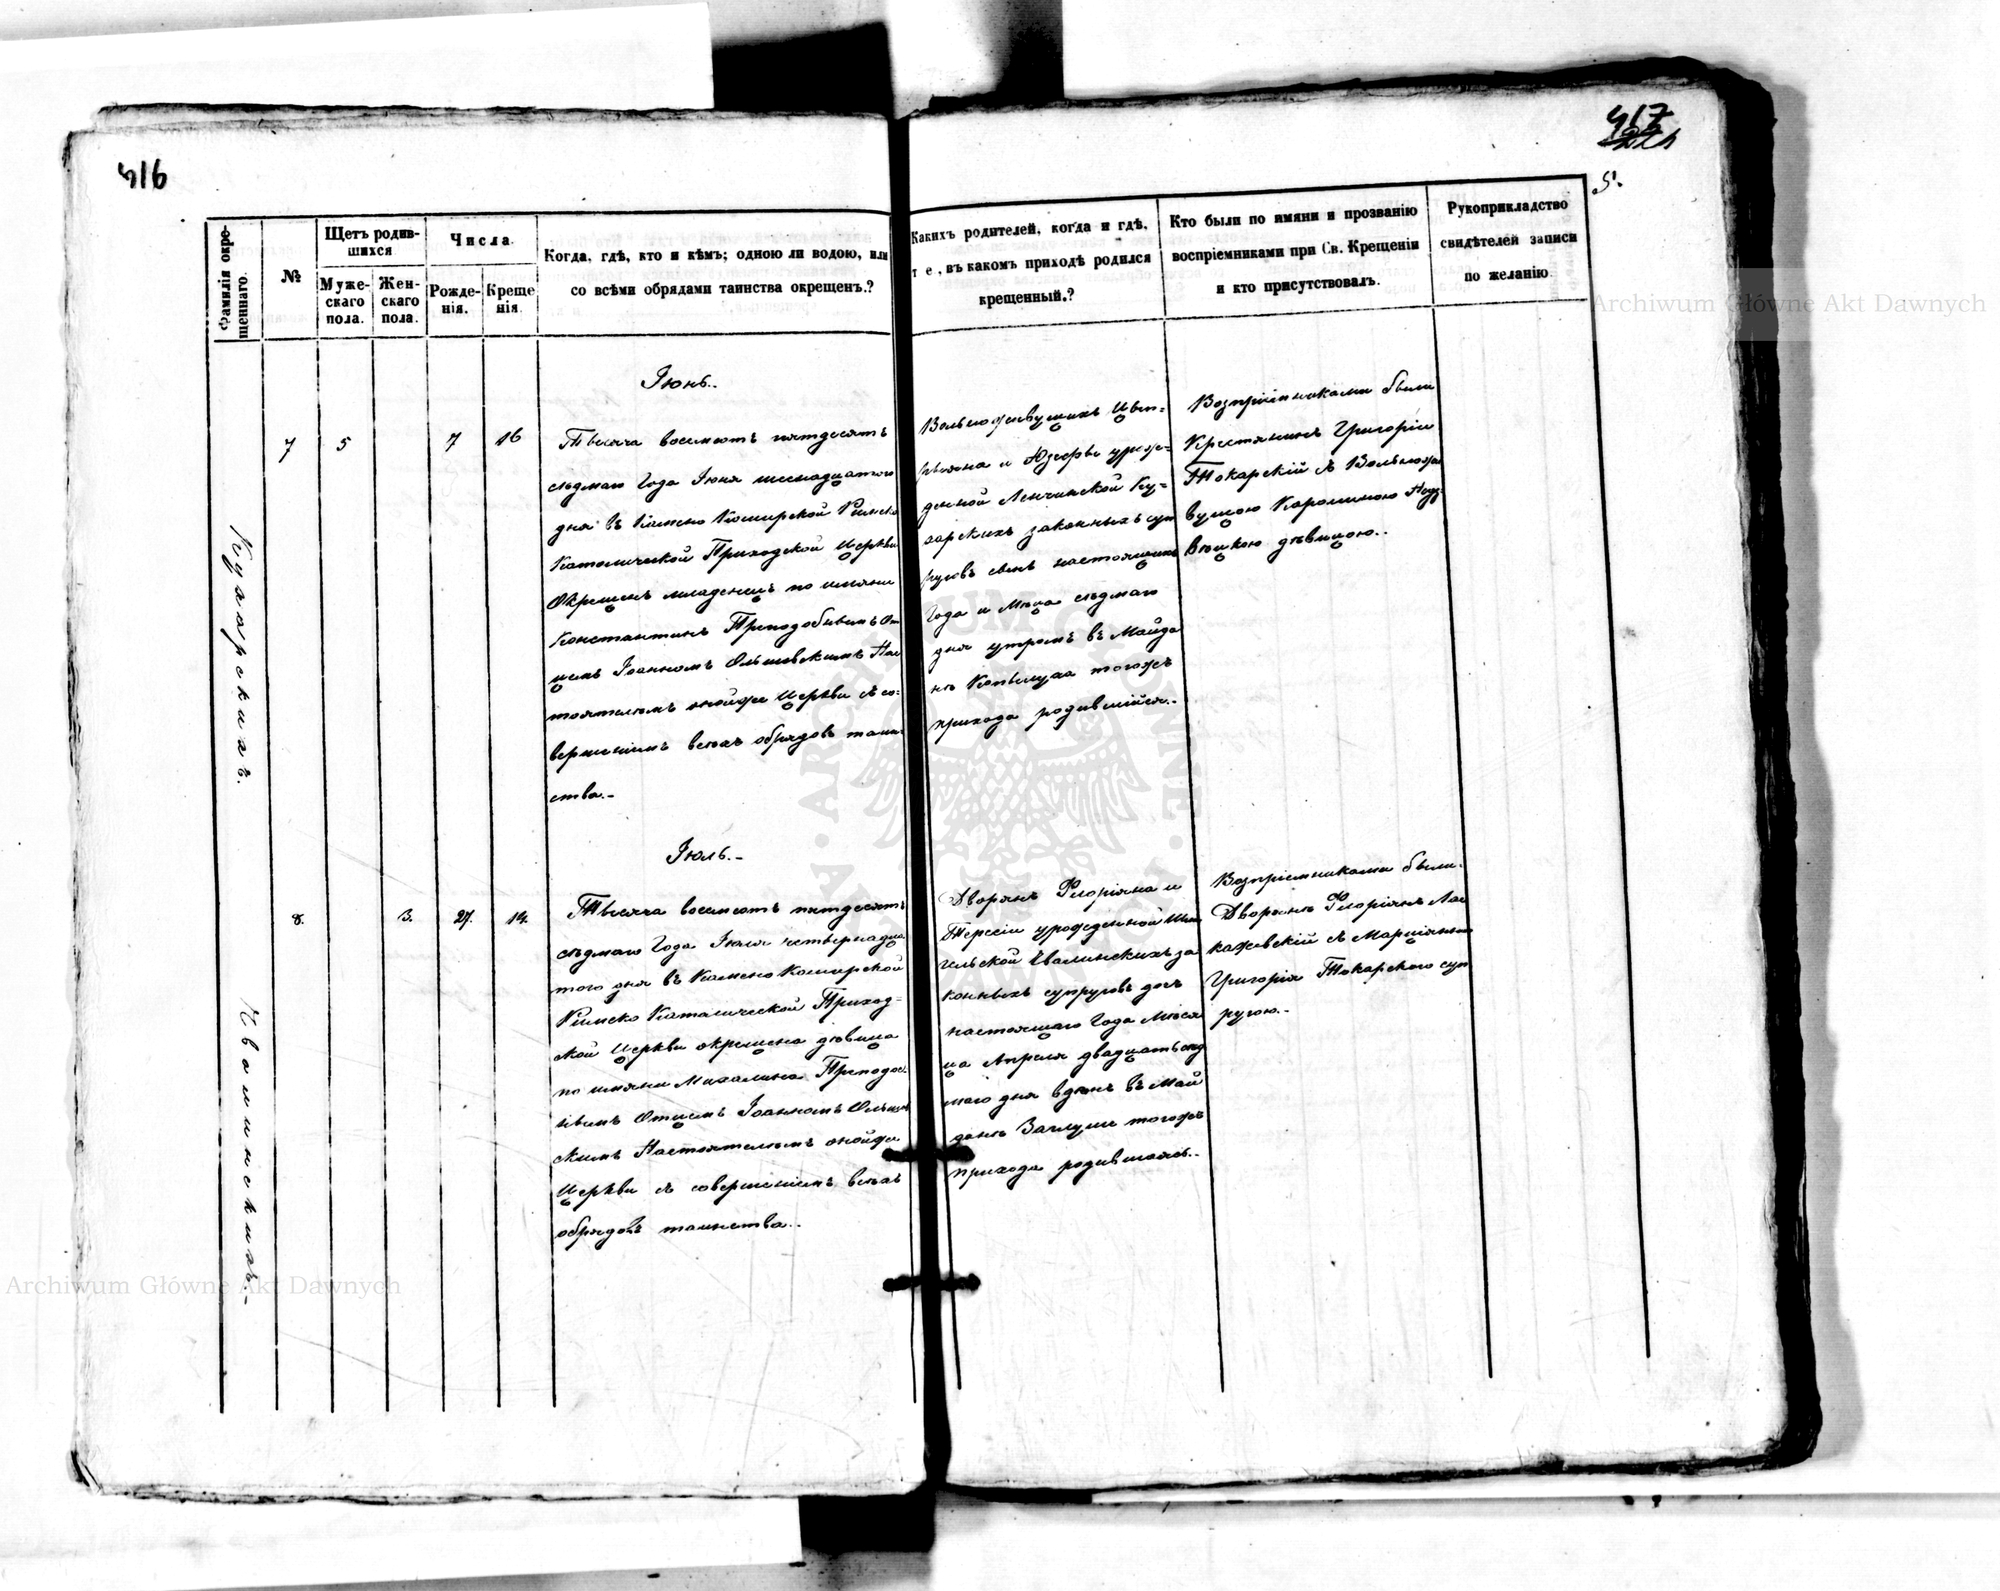 416
417
5.
Фамилія окре-
щеннаго.
№
Щетъ родив-
шихся
Муже-
скаго
пола.
Жен-
скаго
пола.
Числа
Рожде-
нія.
Креще
нія
Когда, гдѣ, кто и кѣмъ; одною ли водою, или
со всѣми обрядами таинства окрещенъ.?
Какихъ родителей, когда и гдѣ,
т е, въ какомъ приходѣ родился
крещенный.?
Кто были по имяни и прозванію
воспріемниками при Св. Крещеніи
и кто присутствовалъ.
Рукоприкладство
свидѣтелей записи
по желанію.
Кухарскихъ.
7
5
7
16
Іюнь.
Тысяча восемсотъ пятдесятъ
седмаго Года Іюня шеснадцатого
дня въ Камено Коширской Римско
Католической Приходской Церкви
Окрещенъ младенецъ по имяни
Константинъ Преподобнымъ От
цемъ Іоанномъ Ольшевскимъ Нас
тоятелемъ онойже Церкви съ со-
вершеніемъ всехъ обрядовъ таин
ства.-
Вольноживущихъ
и Юзефы урож-
денной Ленчинской Ку-
харскихъ законныхъ суп
руговъ сынъ настоящаго
Года и Мѣца седмаго
дня утромъ въ Майда
нѣ тогожъ
прихода родившійся.-
Возпріемниками были
Крестянинъ Григорій
Токарскій съ Вольножи
вущою Каролиною
дѣвицою..
Квалинскихъ.-
8.
3.
27.
14.
Іюль.-
Тысяча восемсотъ пятдесятъ
седмаго Года Іюля четвернадца
того дня въ Камено Коширской
Римско Католической Приход-
ской Церкви окрещена дѣвица
по имяни Михалина Преподоб
нымъ Отцемъ Іоанномъ Ольшев
скимъ Настоятелемъ онойже
Церкви съ совершеніемъ всехъ
обрядовъ таинства..
Дворянъ Флоріяна и
Терезіи урожденной
Квалинскихъ за
конныхъ супруговъ дочь
настоящаго Года Мѣся
ца Апреля двадцать сед
маго дня въ Май
данѣ тогожъ
прихода родившаяся..
Возпріемниками были
Дворянъ Флоріянъ
съ Маріянною
Григорія Токарского суп
ругою.-
Archiwum Główne Akt Dawnych
Archiwum Główne Akt Dawnych